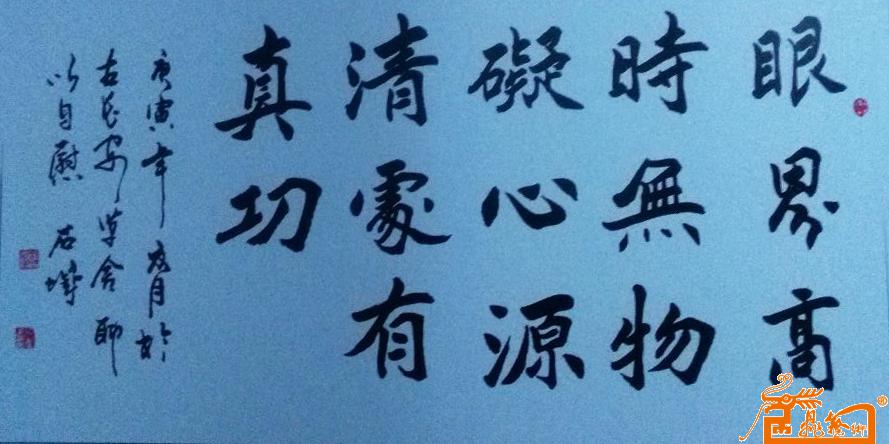 眼界高
時無物
礙心源
清處有
真功
庚寅年 月於
古長安草舍聊
以自慰 石